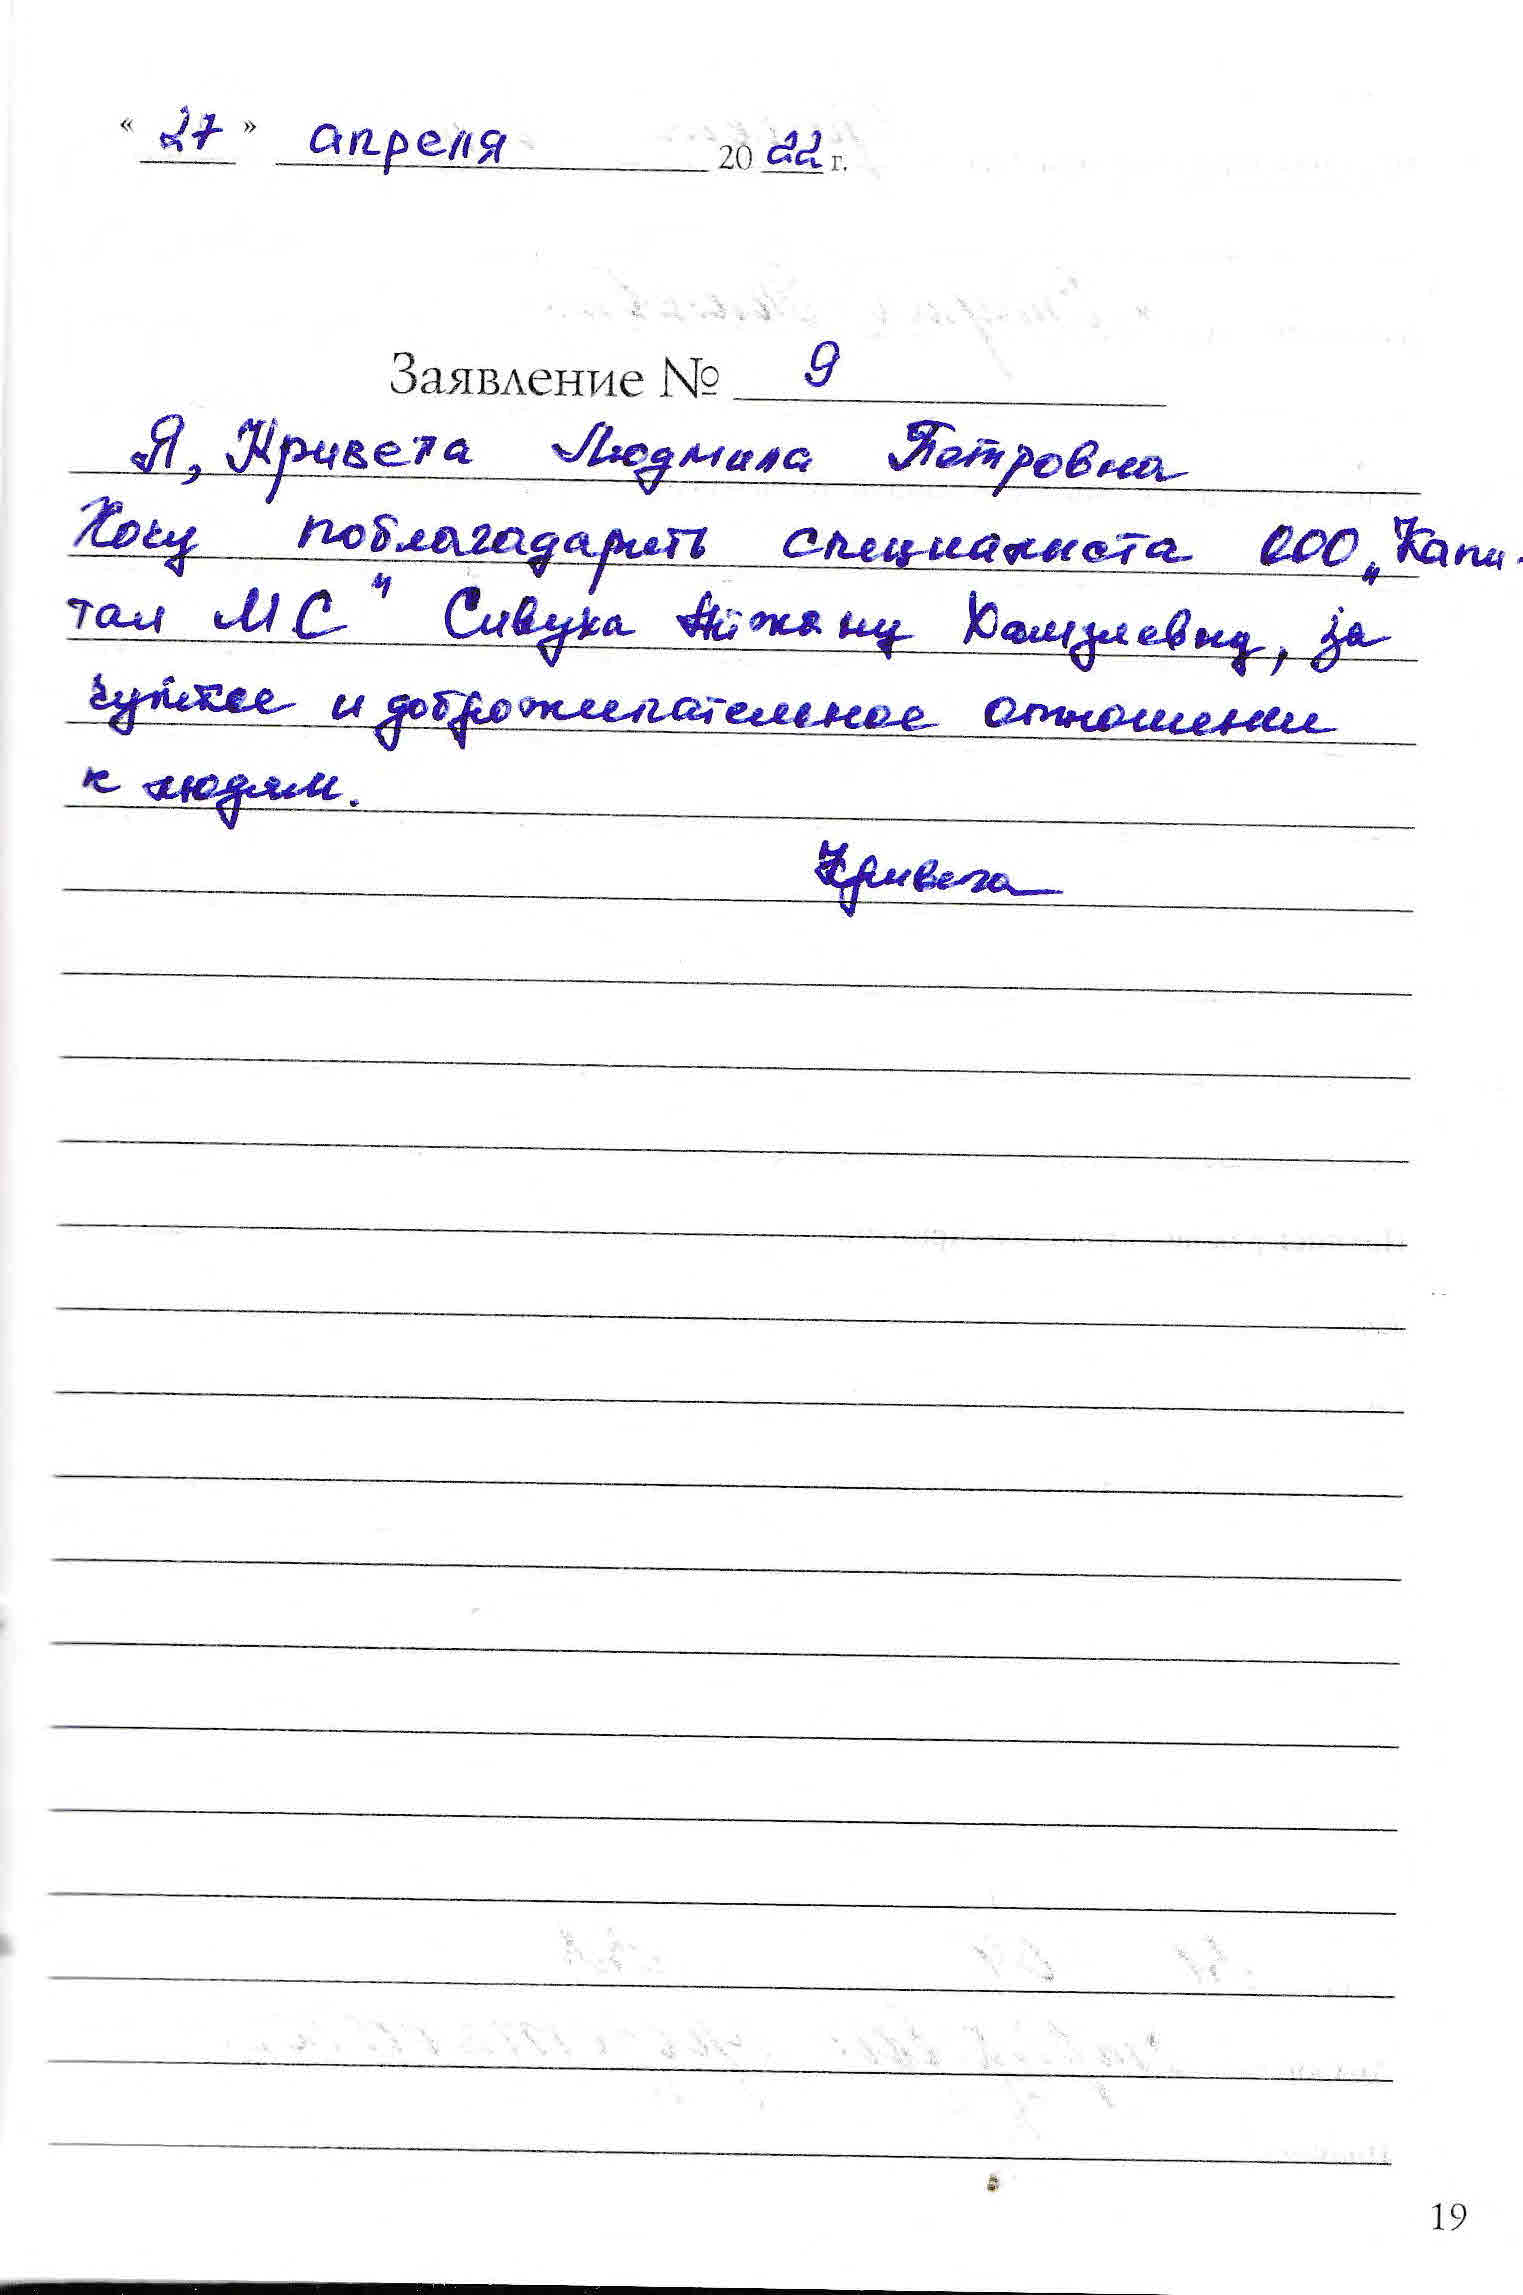 « 27 » апреля 2022 г.
Заявление № 9
Я, Кривега Людмила Петровна
Хочу поблагадарить специалиста ООО „Капи-
тал МС" Сивуха Жанну Хамзиевну, за
чуткое и доброжилательное отношении
к людям.
Кривега
19